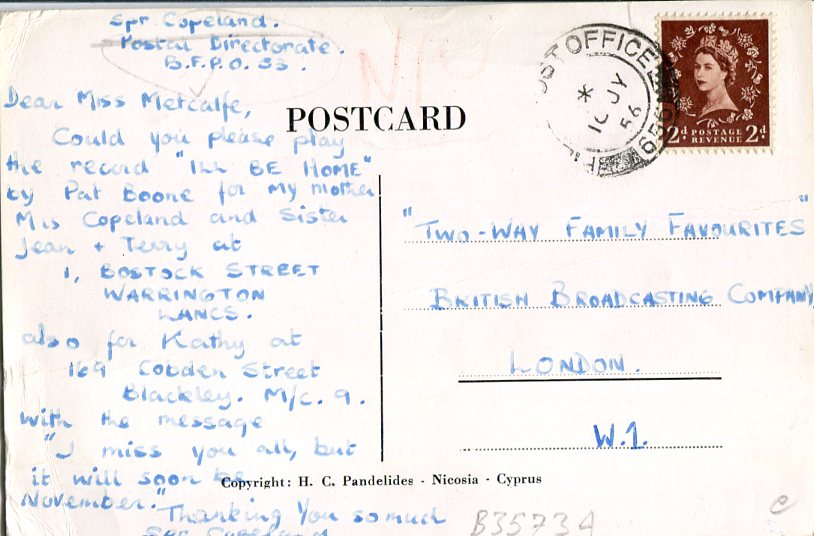 Spr. Copeland.
Postal Directorate.
B.F.P.O. 53.
Dear Miss Metcalfe,
Could you please play
the record "I'LL BE HOME"
by Pat Boone for my mother
Mrs Copeland and Sister
Jean + Terry at
1, BOSTOCK STREET
WARRINGTON
LANCS.
also for Kathy at
169 Cobden Street
Blackley. M/c. 9.
with the message
"I miss you all, but
it will soon be
November."
Thanking You so much
Spr Copeland
POSTCARD
Copyright: H. C. Pandelides - Nicosia - Cyprus
POST OFFICE
10 JY
56
2d POSTAGE 2d
REVENUE
"TWO-WAY FAMILY FAVOURITES"
BRITISH BROADCASTING COMPANY
LONDON.
W.1.
B35734
e